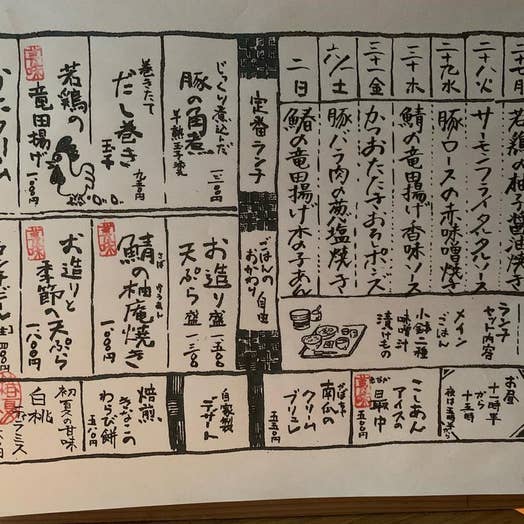 若鶏の柚子醤油焼き
二十八 火
サーモンフライタルタルソース
二十九 水
豚ロースの赤味噌焼き
三十 木
鯖の竜田揚げ香味ソース
三十一 金
かつおたたきおろしポンズ
六/一 土
豚バラ肉の葱塩焼き
二 日
鰆の竜田揚げ木の子あん
定番ランチ
じっくり煮込んだ
豚の角煮
半熟玉子
巻きたて
だし巻き
玉子
九五〇円
若鶏の
竜田揚げ
ごはんの
おかわり自由
お造り盛
天ぷら盛
鯖の柚庵焼き
さば
ゆうあん
お造りと
季節の天ぷら
ランチ
セット内容
メイン
ごはん
小鉢二種
味噌汁
漬けもの
お昼
十一時半
から
十五時
こしあん
アイスの
最中
もなか
かぼちゃ
南瓜の
クリーム
ブリュレ
五五〇円
自家製
デザート
焙煎
きなこの
わらび餅
五八〇円
初夏の甘味
白桃
ティラミス